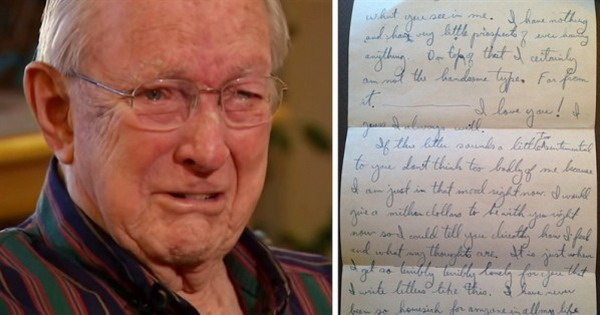 what you see in me. I have nothing
and have very little prospects of ever having
anything. On top of that I certainly
am not the handsome type. Far from
it. I love you! I
guess I always will.
If this letter sounds a little too sentimental
to you don't think too badly of me because
I am just in that mood right now. I would
give a million dollars to be with you right
now so I could tell you directly how I feel
and what my thoughts are. It is just when
I get so terribly terribly lonely for you that
I write letters like this. I have never
been so homesick for anyone in all my life